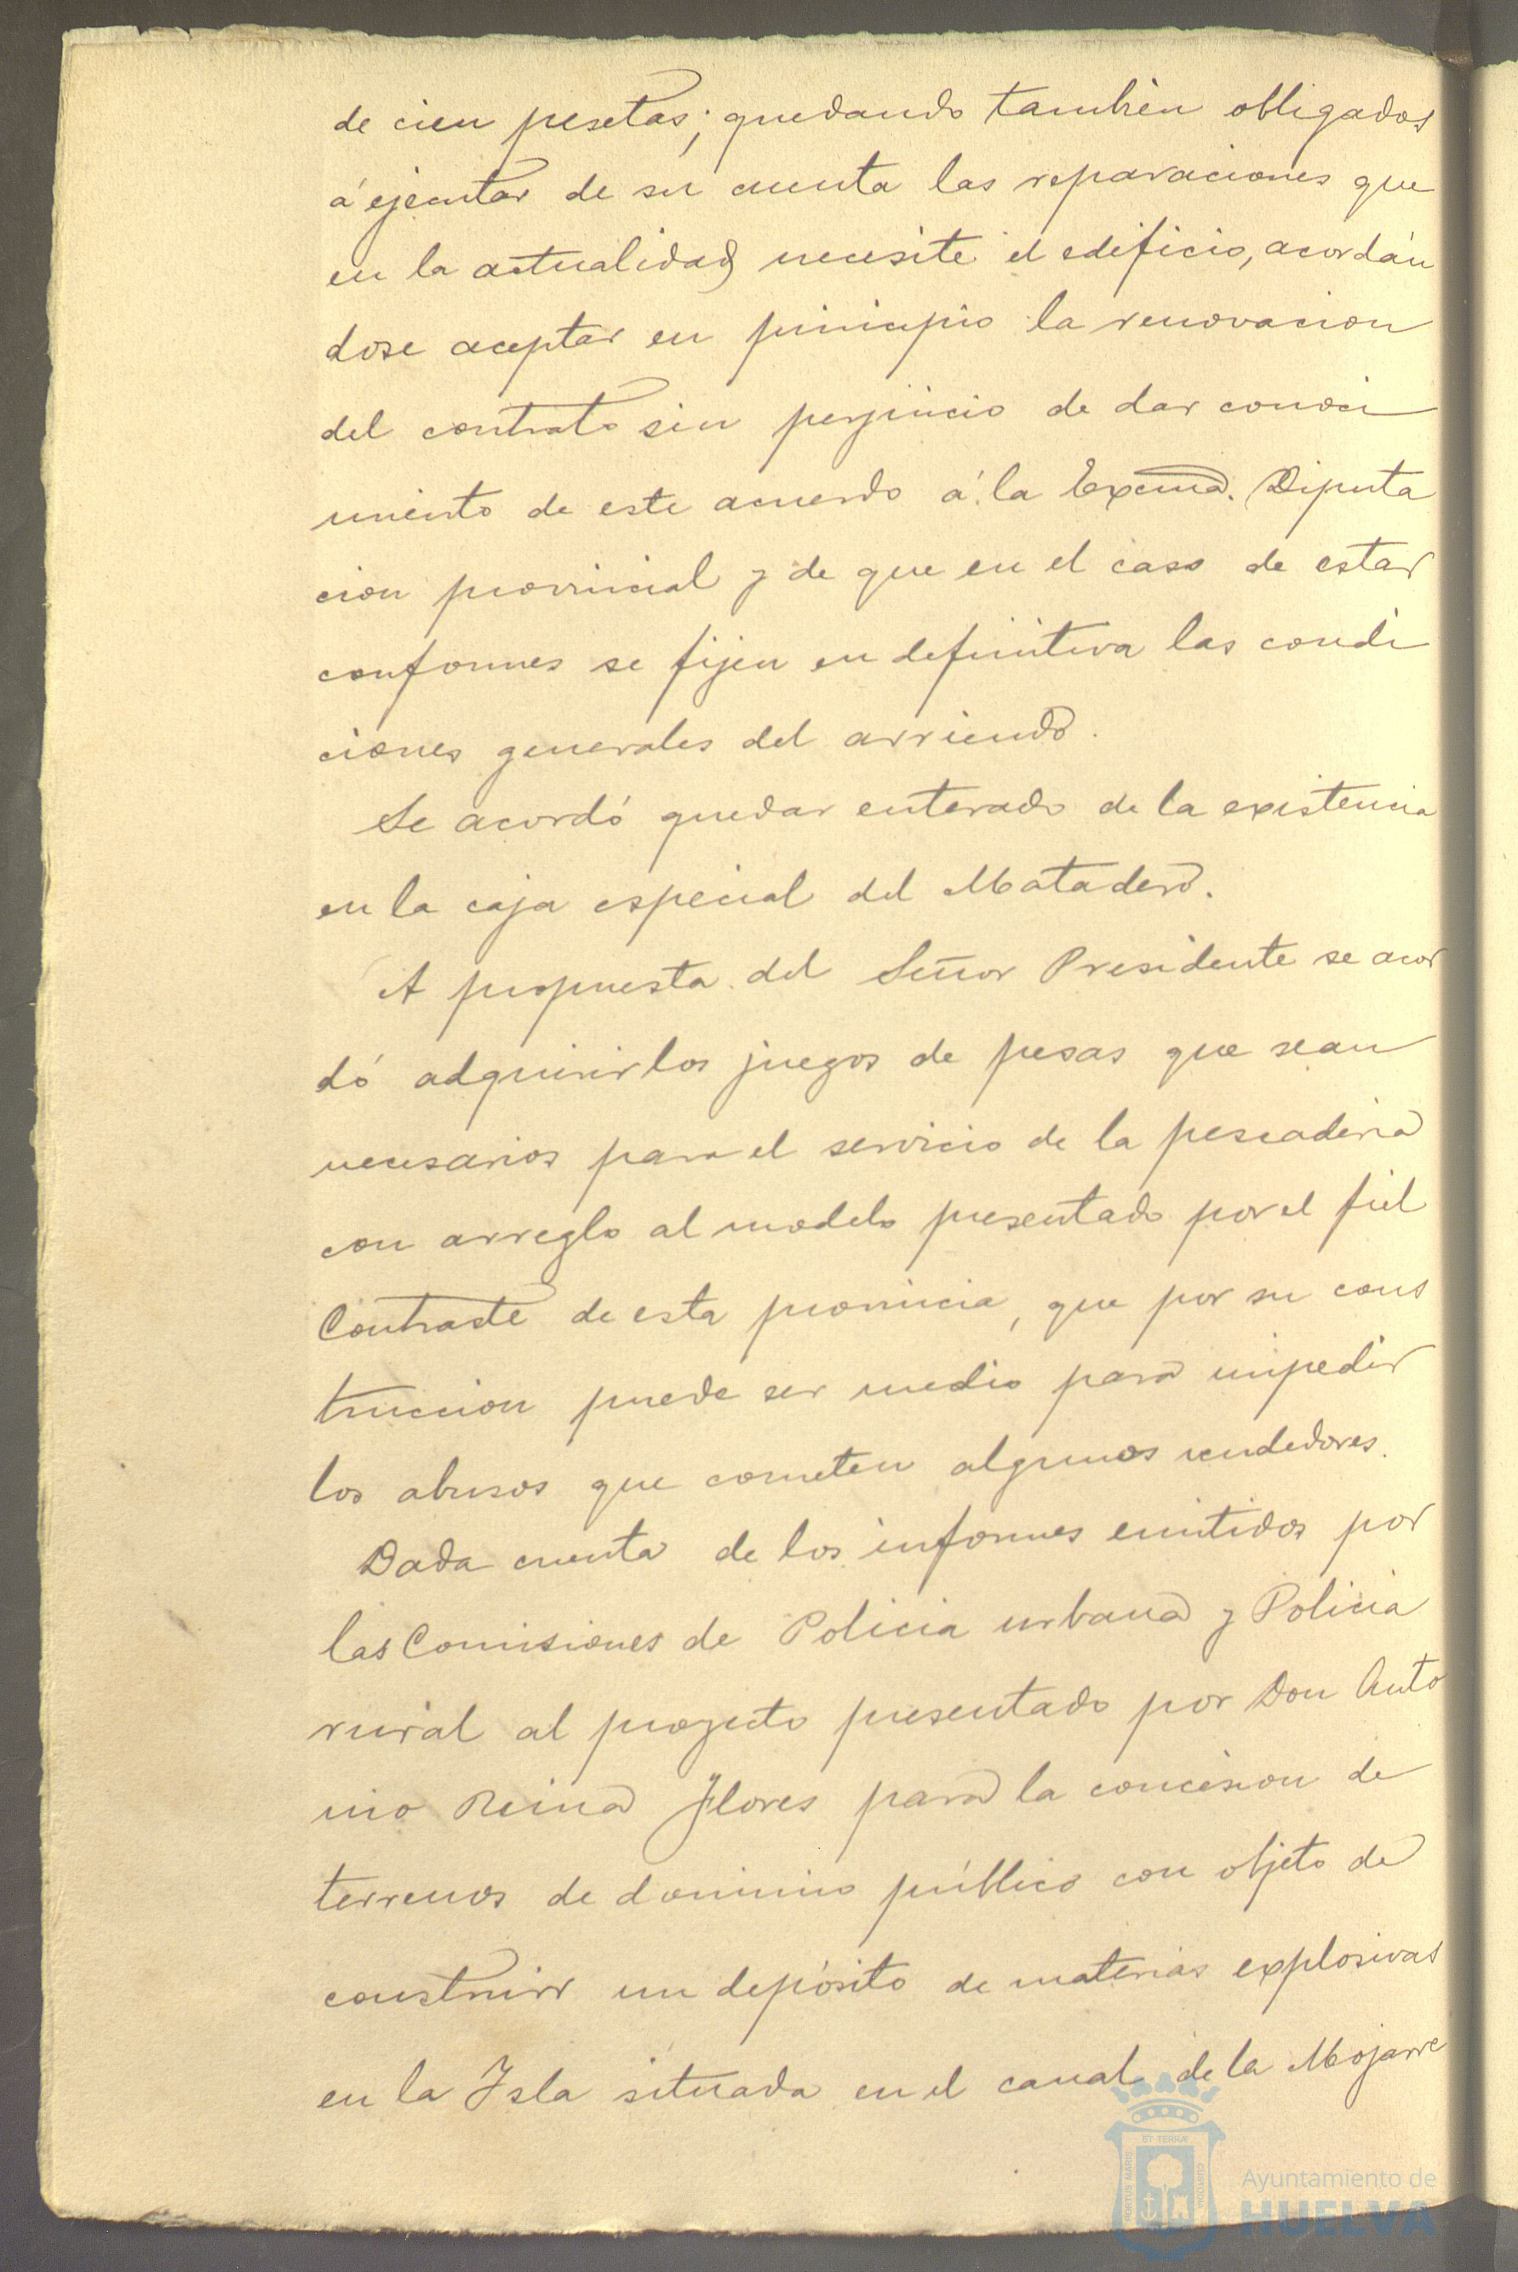 de cien pesetas; quedando tambièn obligados
á ejecutar de su cuenta las reparaciones que
en la actualidad necesite el edificio, acordán
dose aceptar en principio la renovacion
del contrato sin perjuicio de dar conoci
miento de este acuerdo á la Excma. Diputa
cion provincial y de que en el caso de estar
conformes se fijen en definitiva las condi
ciones generales del arriendo.
Se acordó quedar enterado de la existencia
en la caja especial del Matadero.
A propuesta del Señor Presidente se acor
dó adquirir los juegos de pesas que sean
necesarios para el servicio de la pescaderia
con arreglo al modelo presentado por el fiel
Contraste de esta provincia, que por su cons
truccion puede ser medio para impedir
los abusos que cometen algunos vendedores.
Dada cuenta de los informes emitidos por
las Comisiones de Policia urbana y Policia
rural al proyecto presentado por Don Anto
nio Reina Flores para la concesion de
terrenos de dominio público con objeto de
construir un depósito de materias explosivas
en la Isla situada en el canal de la Mojarre
Ayuntamiento de
HUELVA